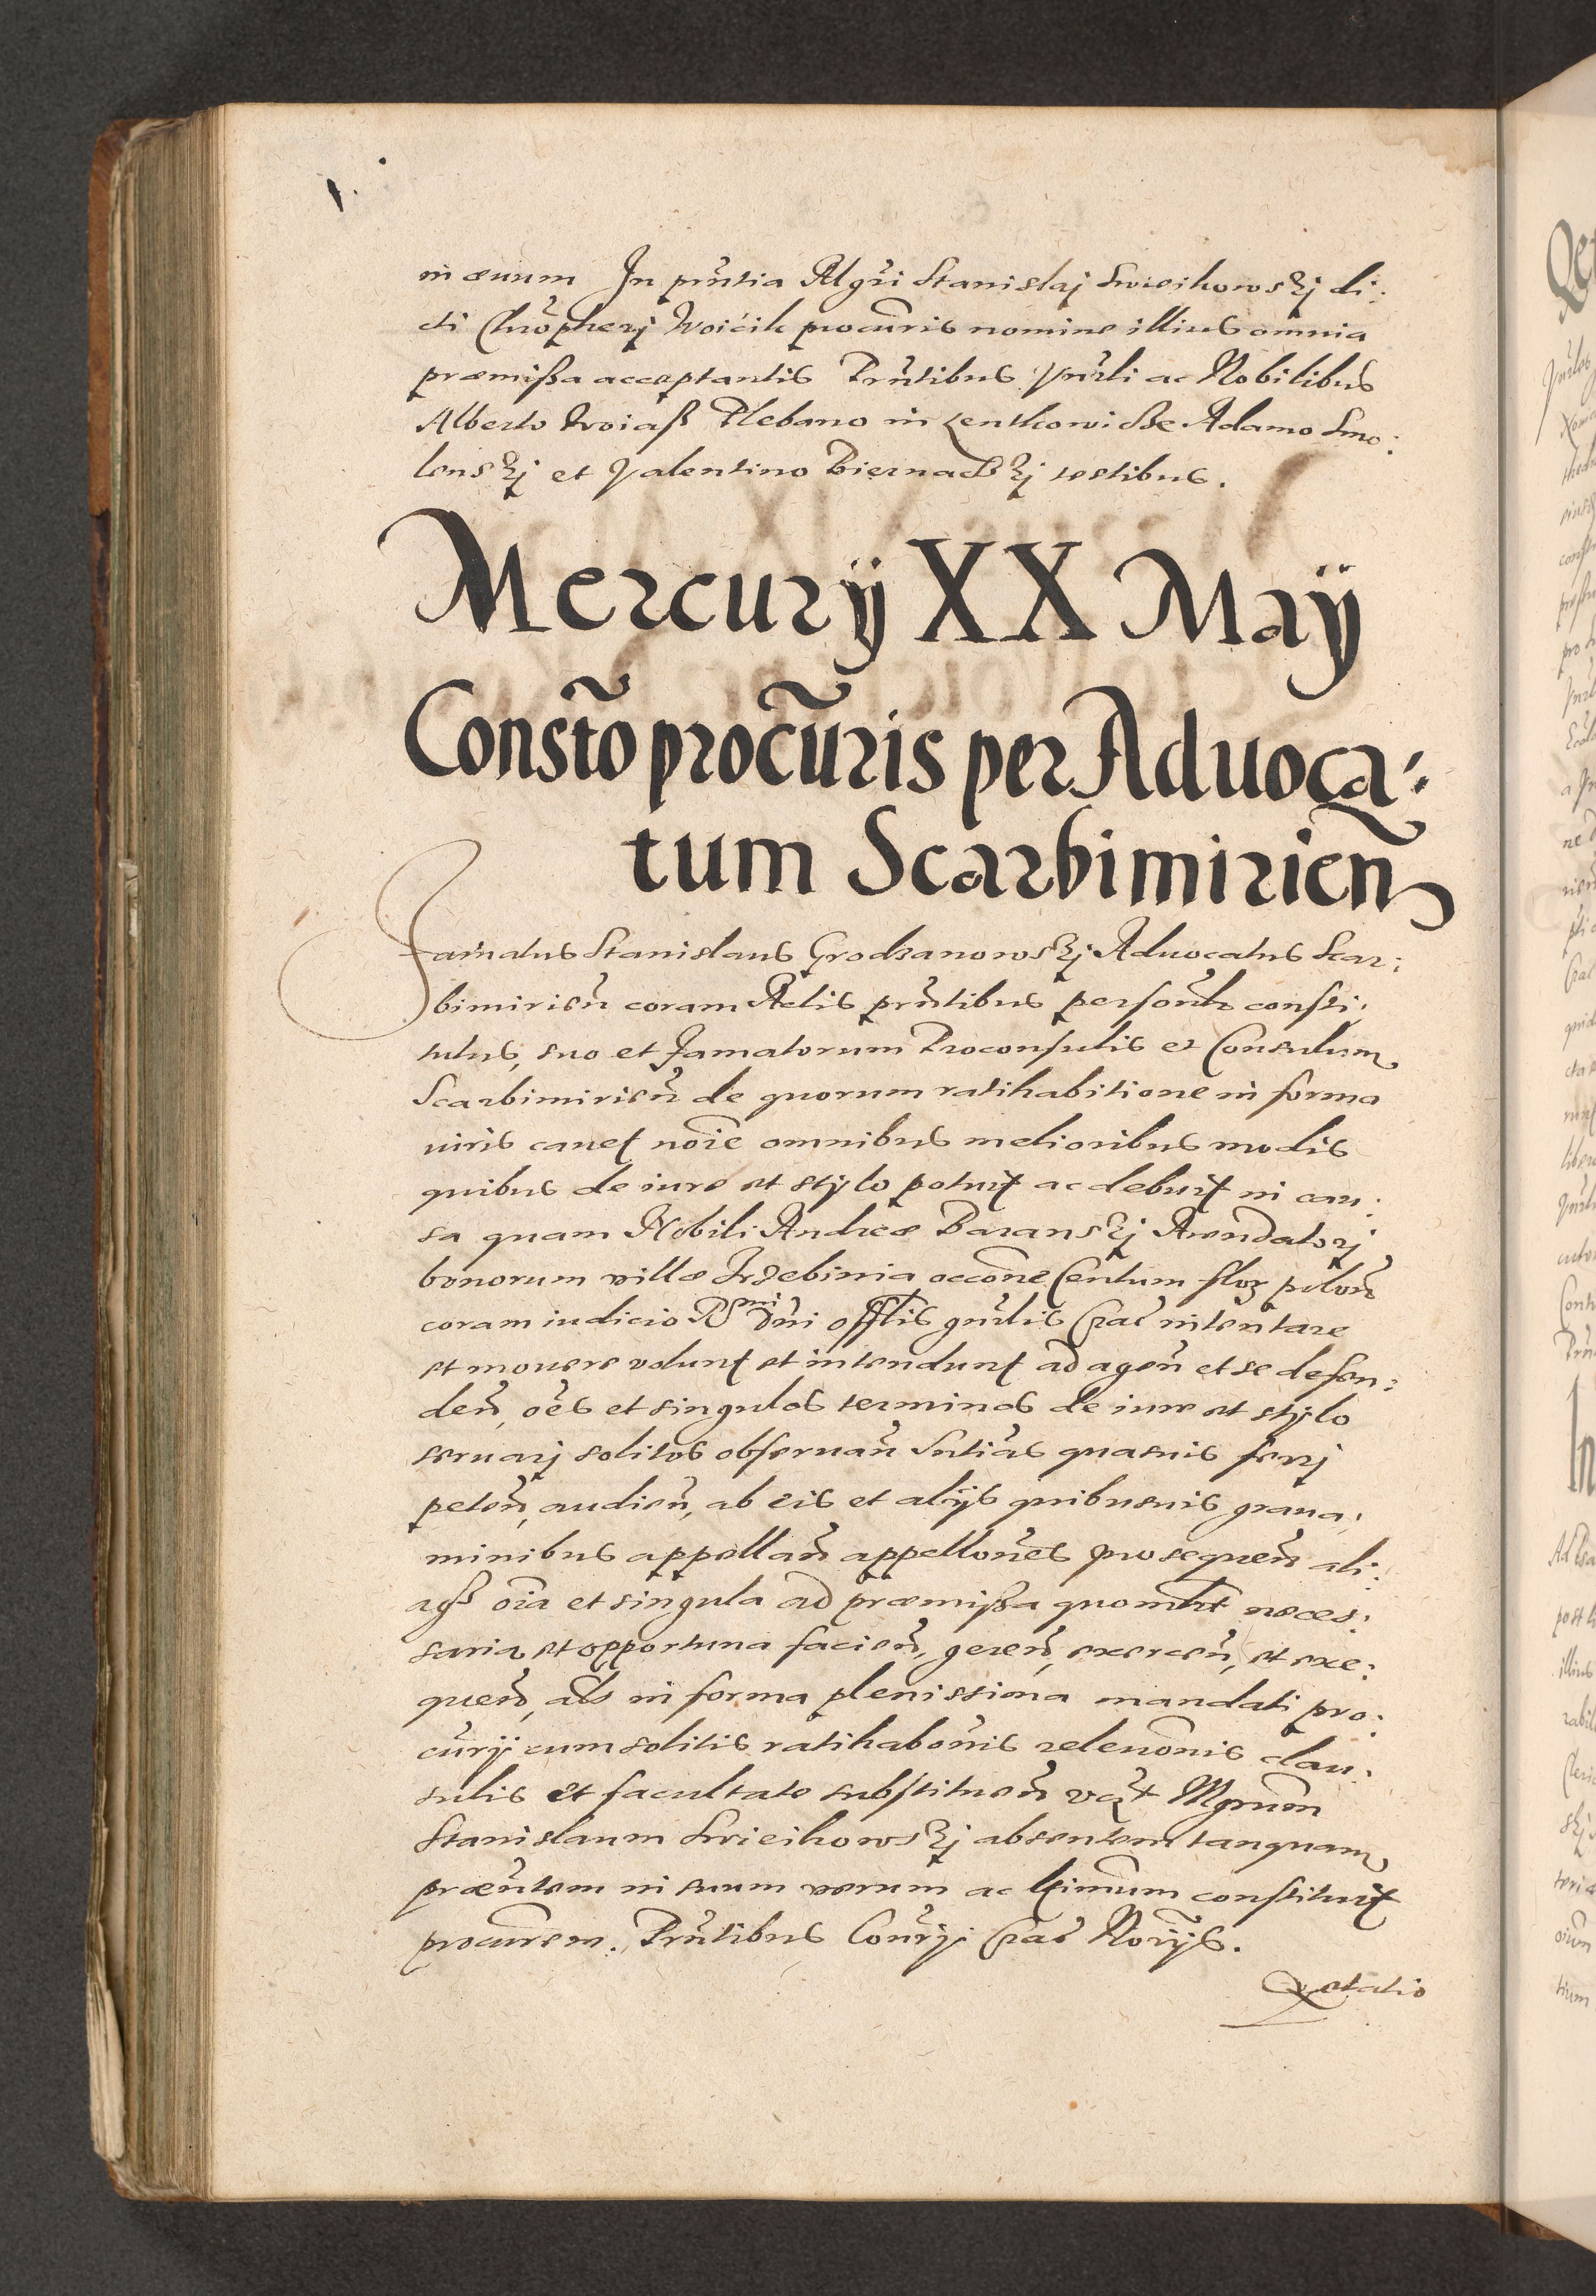 in æuum In pñtia Mgri Stanislaj Swieihowskj di:
cti Chrõpherj Woicik procuris nomine illius omnia
præmißa acceptantis Prñtibus Vnrli ac Nobilibus
Alberto Woiaß Plebano in Adamo Smo:
lenskj et Valentino Biernadzkj testibus.
Mercurÿ XX Maÿ
Constõ procũris per Aduoca:
tum Scarbimirien̄
Famatus Stanislaus Grodzanowskj Aduocatus Scar:
bimirien̄ coram Actis prñtibus personlr consti:
tutus, suo et Famatorum Proconsulis et Consulum
Scarbimirien̄ de quorum ratihabitione in forma
iuris cauet noĩe omnibus melioribus modis
quibus de iure et stÿlo potuit ac debuit in cau:
sa quam Nobili Andreæ Baranskj Arendatorj
bonorum villæ Trzebinia occõne Centum flor polon̄
coram iudicio Rmi Dñi offlis gnrlis Crac intentare
et mouere volunt et intendunt ad agen̄ et se defen:
den̄, oẽs et singulos terminos de iure et stÿlo
seruarj solitos obseruan̄ Sntias quasuis ferrj
peten̄, audien̄, ab eis et alÿs quibusuis graua:
minibus appellan̄ appellones prosequen̄ ali:
aqß oĩa et singula ad præmißa quomlt neces:
saria et opportuna facien̄, geren̄, exercen̄, et exe:
quen̄, als in forma plenissima mandati pro:
curÿ cum solitis ratihabonis releuõnis clau:
sulis et facultate substituen̄ Mgrum
Stanislaum Swieihowskj absentem tanquam
præsentem in suum verum ac ltimum constituit
procurem. Prñtibus Conrÿ Crac Norÿs.
Qetatio